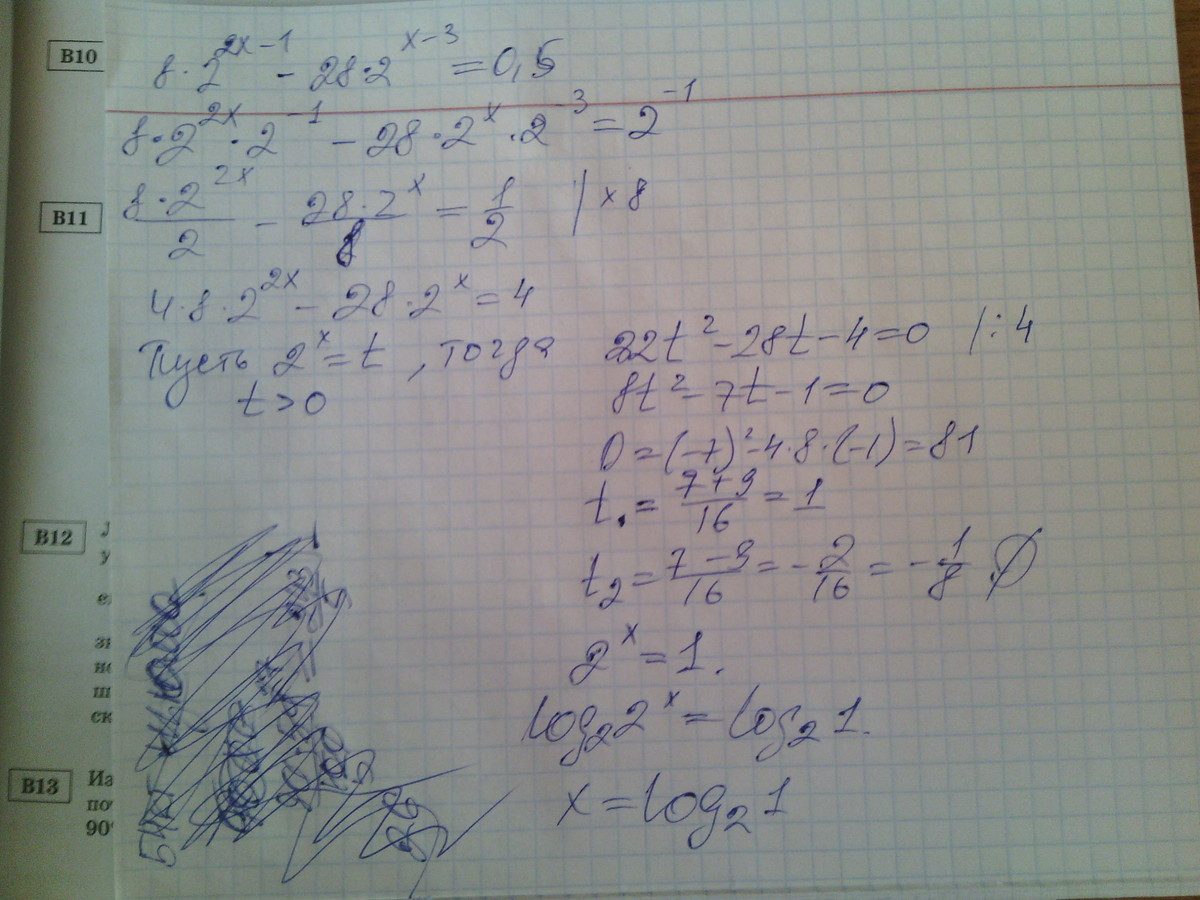 B10
8·2^(2x-1) - 28·2^(x-3) = 0,5
8·2^(2x)·2^(-1) - 28·2^x·2^(-3) = 2^(-1)
B11
8·2^(2x)/2 - 28·2^x/8 = 1/2 | ×8
4·8·2^(2x) - 28·2^x = 4
Пусть 2^x = t, тогда
t > 0
32t² - 28t - 4 = 0 |:4
8t² - 7t - 1 = 0
D = (-7)² - 4·8·(-1) = 81
t₁ = (7+9)/16 = 1
B12
t₂ = (7-9)/16 = -2/16 = -1/8 ∅
2^x = 1.
log₂2^x = log₂1.
x = log₂1
B13
Из
по
90°